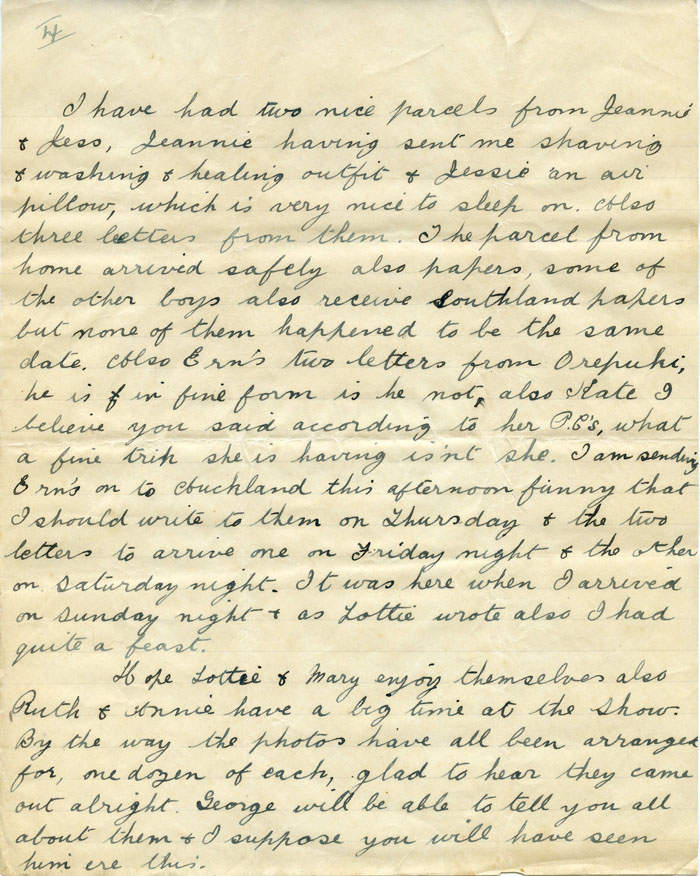 4
I have had two nice parcels from Jeannie
& Jess, Jeannie having sent me shaving
& washing & healing outfit & Jessie an air
pillow, which is very nice to sleep on. Also
three letters from them. The parcel from
home arrived safely also papers, some of
the other boys also receive Southland papers
but none of them happened to be the same
date. Also Ern's two letters from Orepuki,
he is in fine form is he not, also Kate I
believe you said according to her P.C's, what
a fine trip she is having isn't she. I am sending
Ern's on to Auckland this afternoon funny that
I should write to them on Thursday & the two
letters to arrive one on Friday night & the other
on Saturday night. It was here when I arrived
on Sunday night & as Lottie wrote also I had
quite a feast.
Hope Lottie & Mary enjoy themselves also
Ruth & Annie have a big time at the Show.
By the way the photos have all been arranged
for, one dozen of each, glad to hear they came
out alright. George will be able to tell you all
about them & I suppose you will have seen
him ere this.